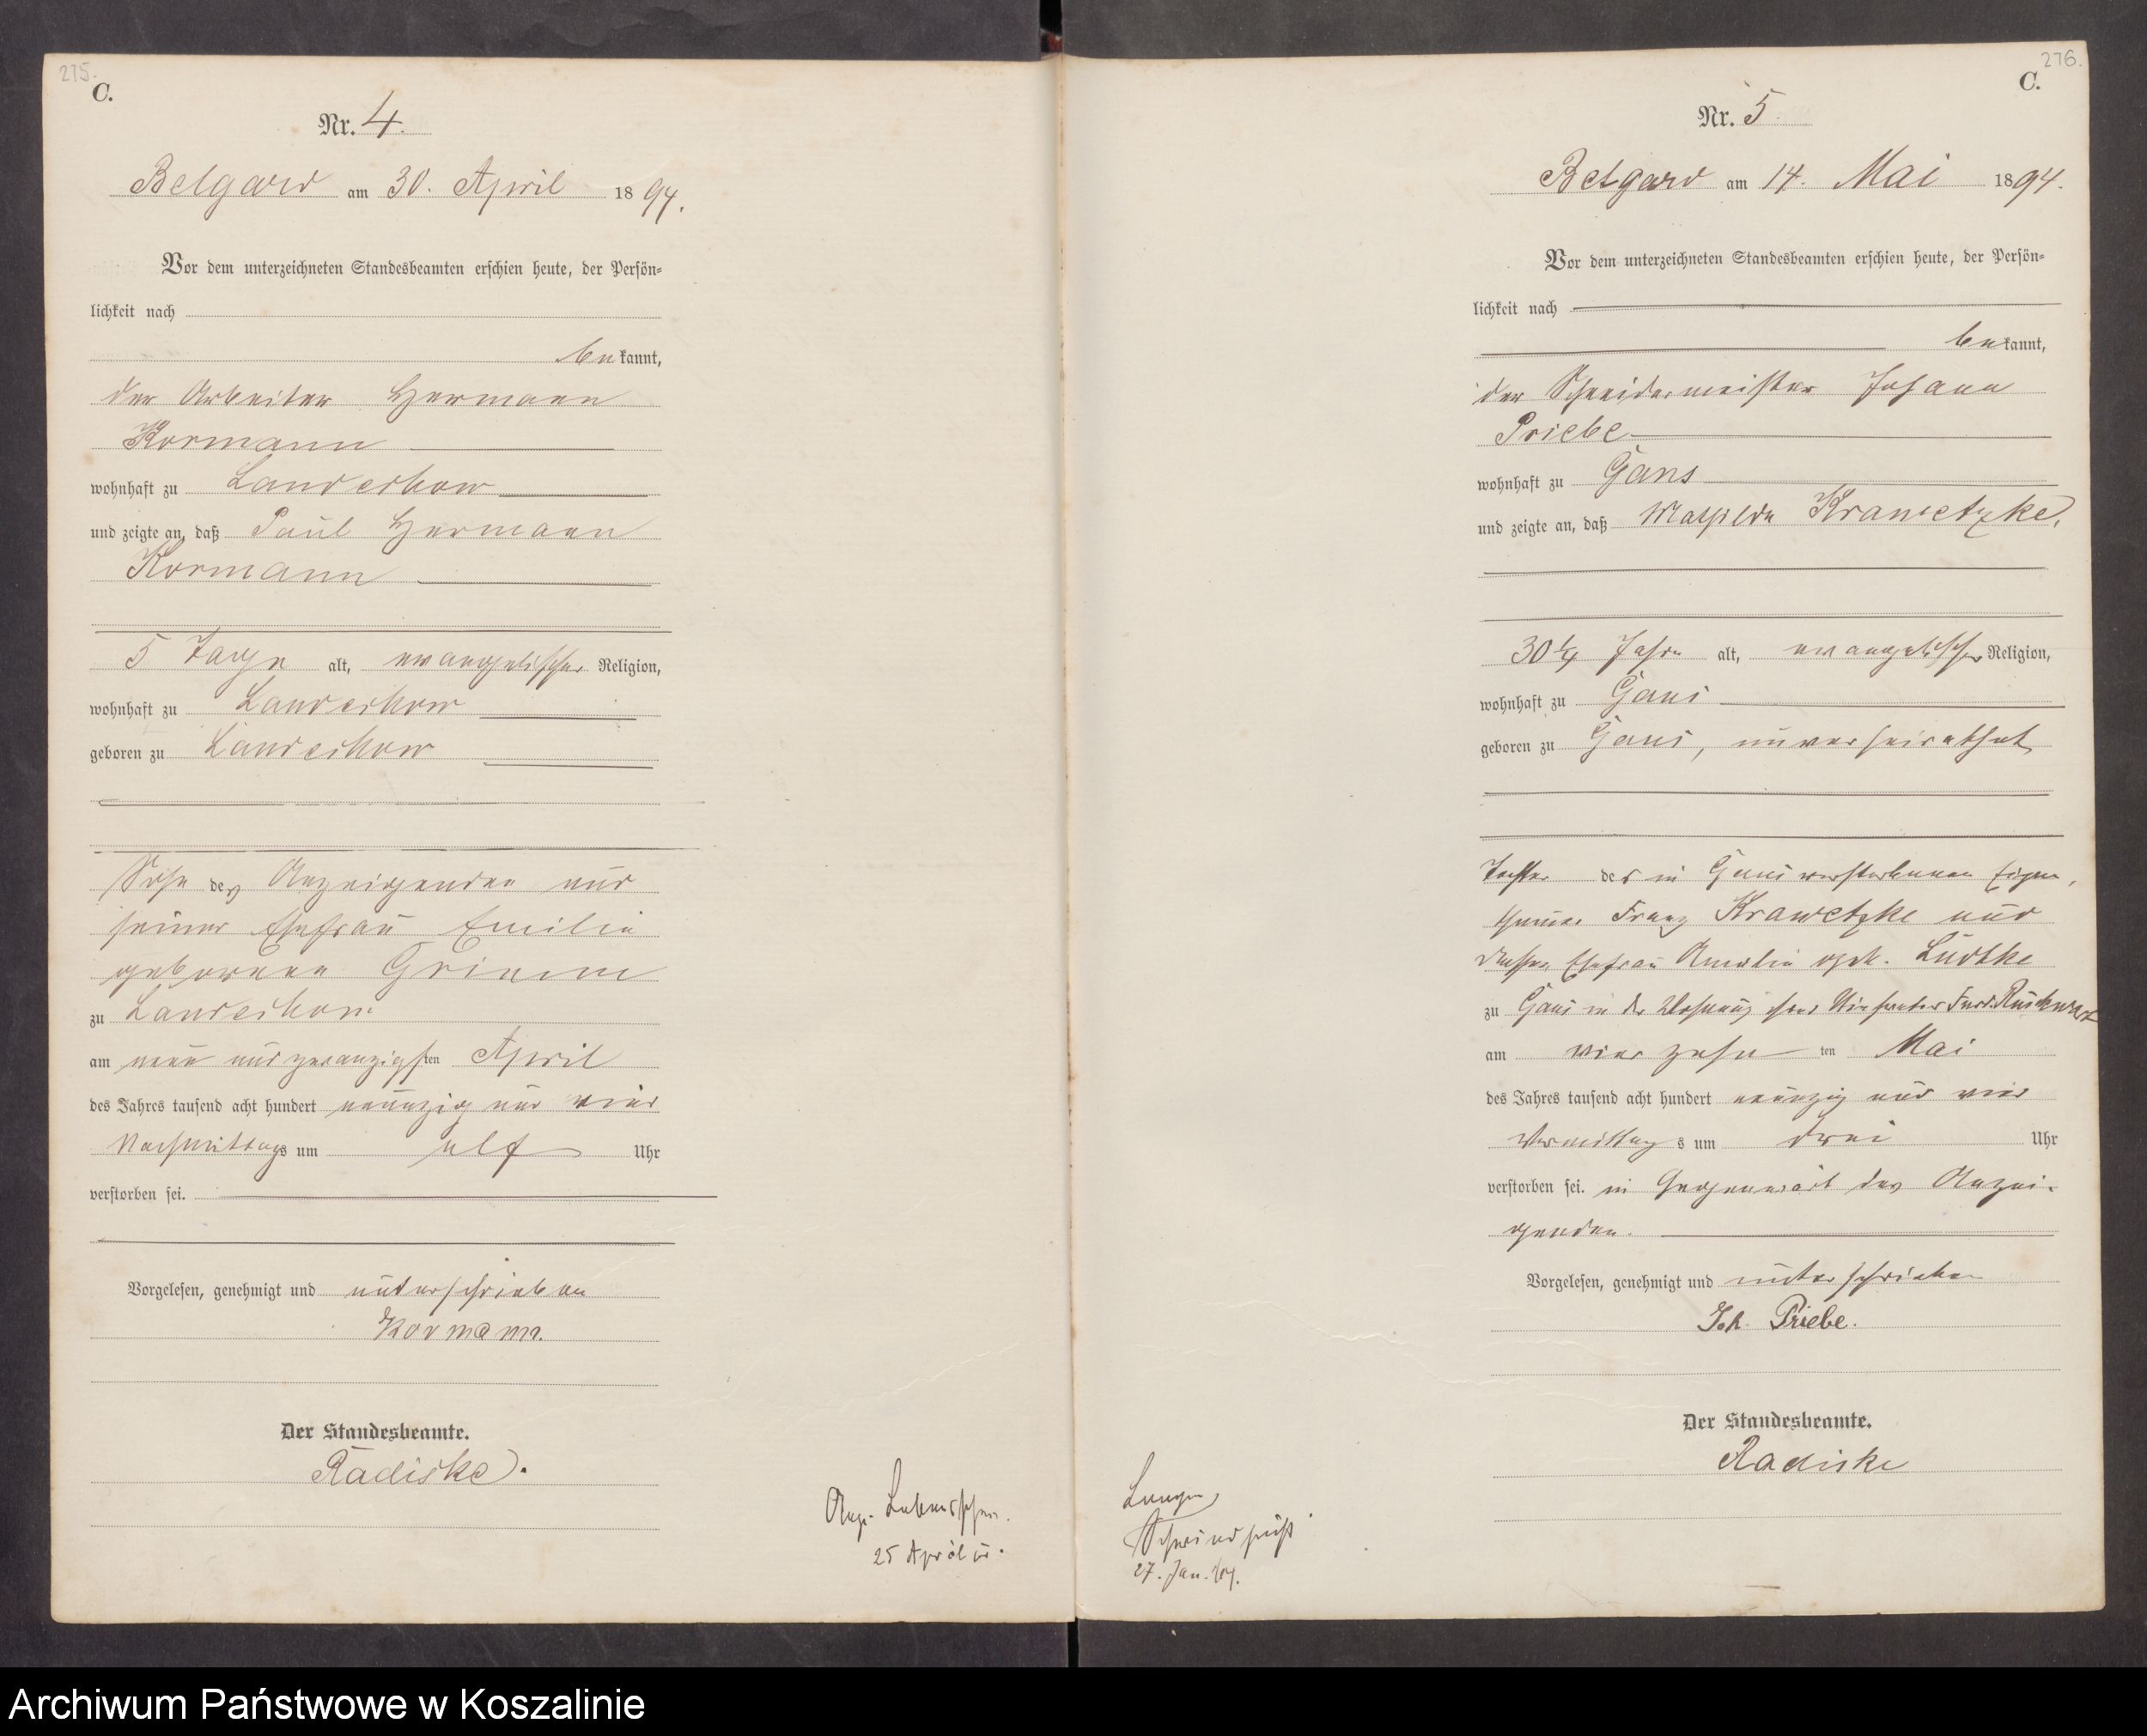 275.
C.
Nr. 4.
Belgard am 30. April 1894.
Vor dem unterzeichneten Standesbeamten erschien heute, der Persön-
lichkeit nach
bekannt,
der Arbeiter Hermann
Kormann
wohnhaft zu Landechow
und zeigte an, daß Paul Hermann
Kormann
5 Tage alt, evangelischer Religion,
wohnhaft zu Landechow
geboren zu Landechow
Sohn des Anzeigenden und
seiner Ehefrau Emilie
geborenen Grimm
zu Landechow
am neun und zwanzigsten April
des Jahres tausend acht hundert neunzig und vier
Nachmittags um elf Uhr
verstorben sei.
Vorgelesen, genehmigt und unterschrieben
Kormann.
Der Standesbeamte.
Radiske.
Ang. Lebensschw.
25 April
276.
C.
Nr. 5
Belgard am 14. Mai 1894.
Vor dem unterzeichneten Standesbeamten erschien heute, der Persön-
lichkeit nach
bekannt,
der Schneidermeister Johann
Priebe
wohnhaft zu Gans
und zeigte an, daß Mathilde Krawetzke,
30 1/4 Jahre alt, evangelischer Religion,
wohnhaft zu Gans
geboren zu Gans, unverheirathet
Tochter des in Gans verstorbenen Eigen-
thümer Franz Krawetzke und
dessen Ehefrau Amalie geb. Lüdtke
zu Gans in der Wohnung ihres Ferd.
am vierzehnten Mai
des Jahres tausend acht hundert neunzig und vier
Vormittags um drei Uhr
verstorben sei. in Gegenwart des Anzei-
genden.
Vorgelesen, genehmigt und unterschrieben
Joh. Priebe.
Der Standesbeamte.
Radiske
Lungen
Schwindsucht
27. Jan.
Archiwum Państwowe w Koszalinie